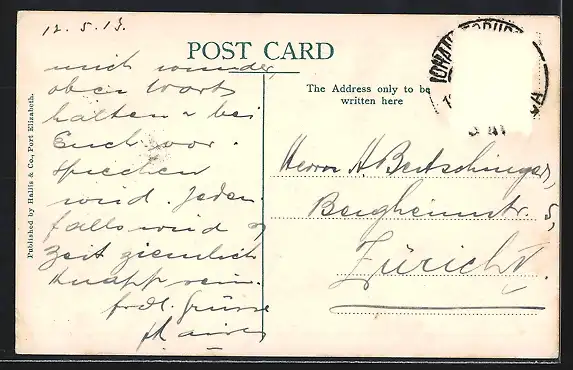 12. 5. 13.
POST CARD
mich wundern,
oben Wort
halten & bei
Euch vor-
sprechen
wird. Jeden-
falls wird
Zeit ziemlich
knapp sein.
frdl. Grüsse
The Address only to be
written here
Herrn H. Bertschinger,
Bergheimstr. 5,
Zürich V.
Published by Hallis & Co., Port Elizabeth.